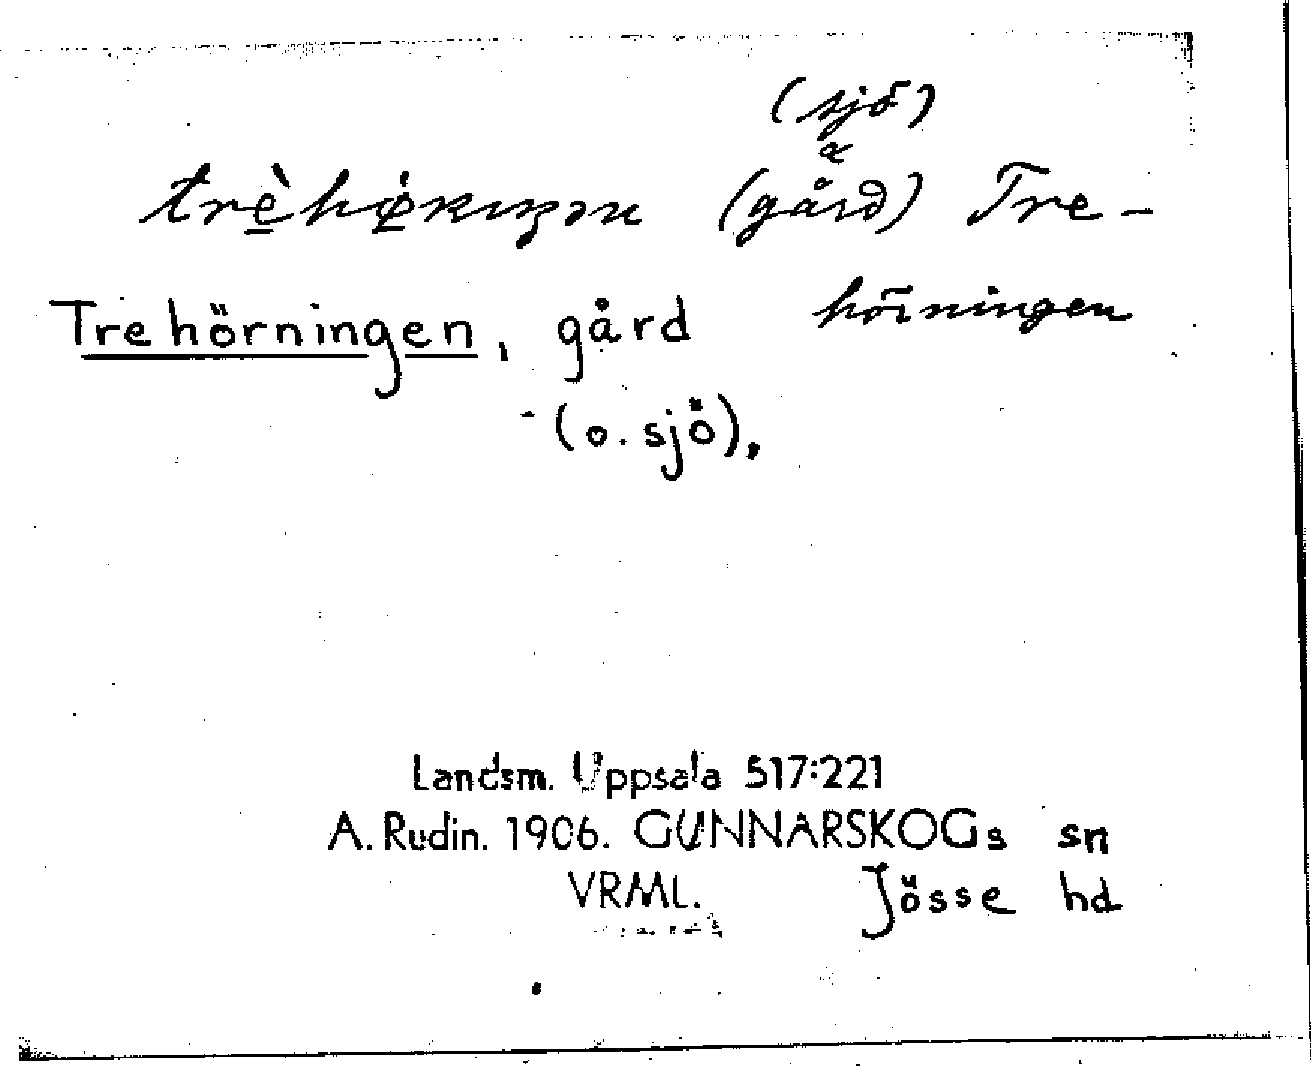 (sjö)
&
(gård) Tre-
hörningen
Trehörningen, gård
(o. sjö),
Landsm. Uppsala 517:221
A. Rudin. 1906. GUNNARSKOGs sn
VRML. Jösse hd